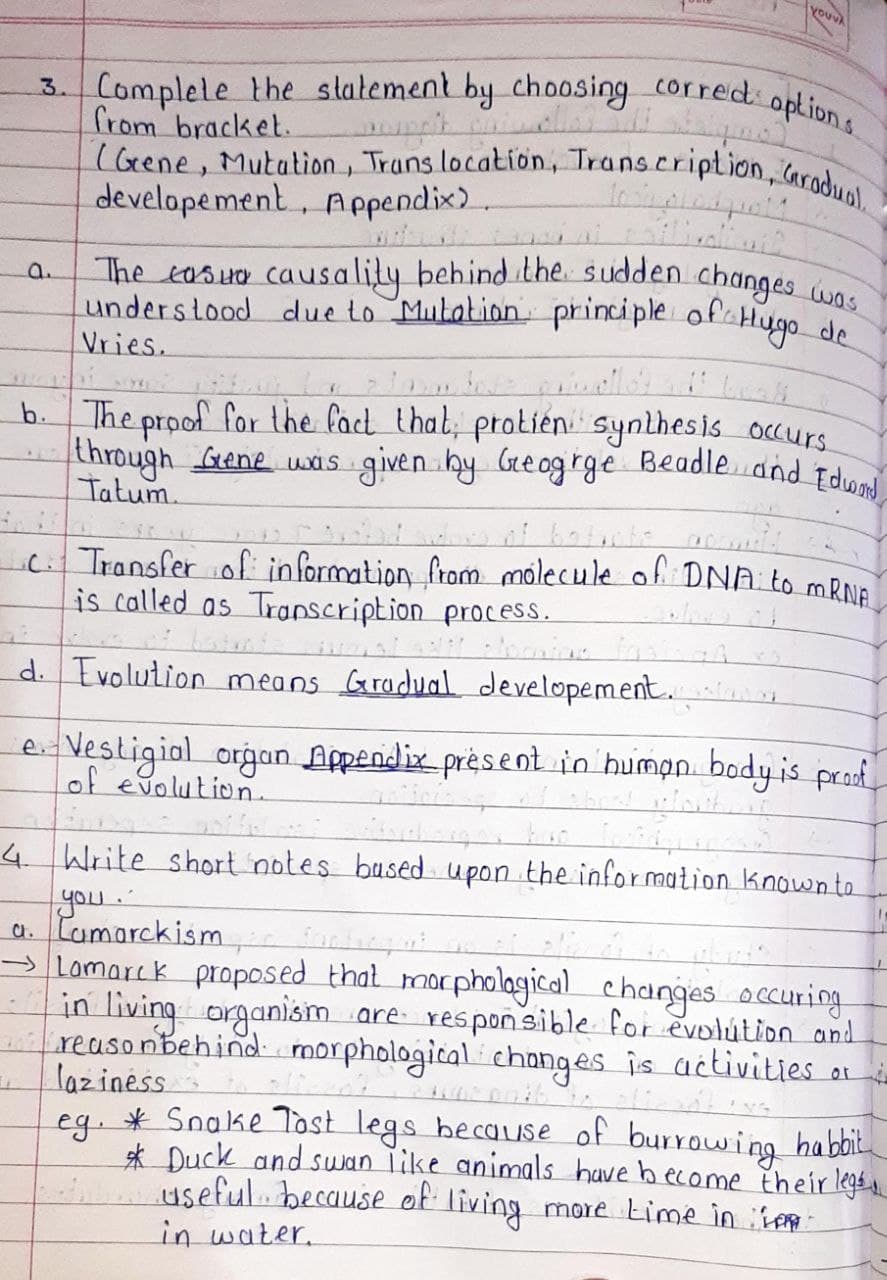 YOUVA
3. Complete the statement by choosing correct options
from bracket.
(Gene, Mutation, Translocation, Transcription, Gradual
developement, Appendix).
a. The casua causality behind the sudden changes was
understood due to Mutation principle of Hugo de
Vries.
b. The proof for the fact that, protien synthesis occurs
through Gene was given by Geogrge Beadle and Edward
Tatum.
c. Transfer of information from molecule of DNA to mRNA
is called as Transcription process.
d. Evolution means Gradual developement.
e. Vestigial organ Appendix present in human body is proof
of evolution.
4. Write short notes based upon the information known to
you.
a. Lamarckism
→ Lamarck proposed that morphological changes occuring
in living organism are responsible for evolution and
reason behind morphological changes is activities or
laziness
eg. * Snake lost legs because of burrowing habbit
* Duck and swan like animals have become their legs
useful because of living more time in
in water.